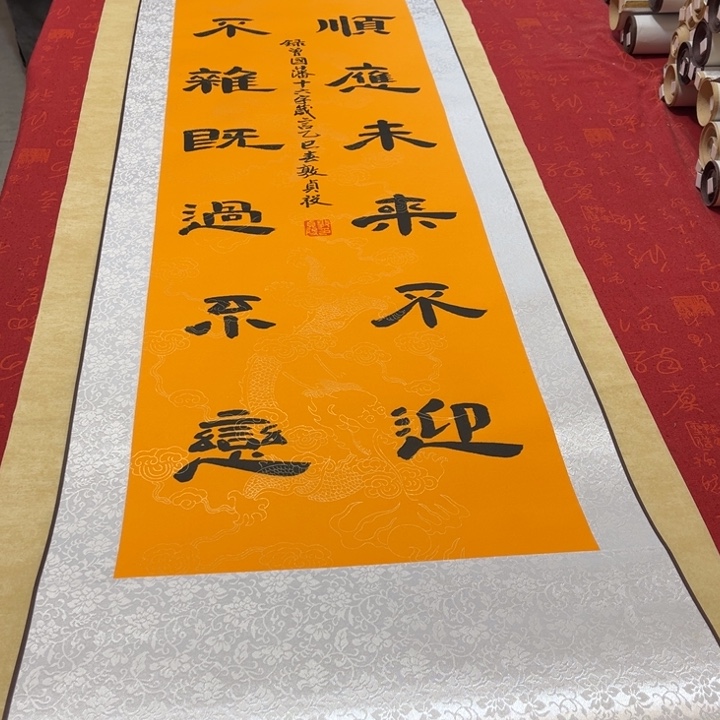 順應未来不迎
不雜既過不戀
錄曾國藩十六字箴言乙巳春敦貞